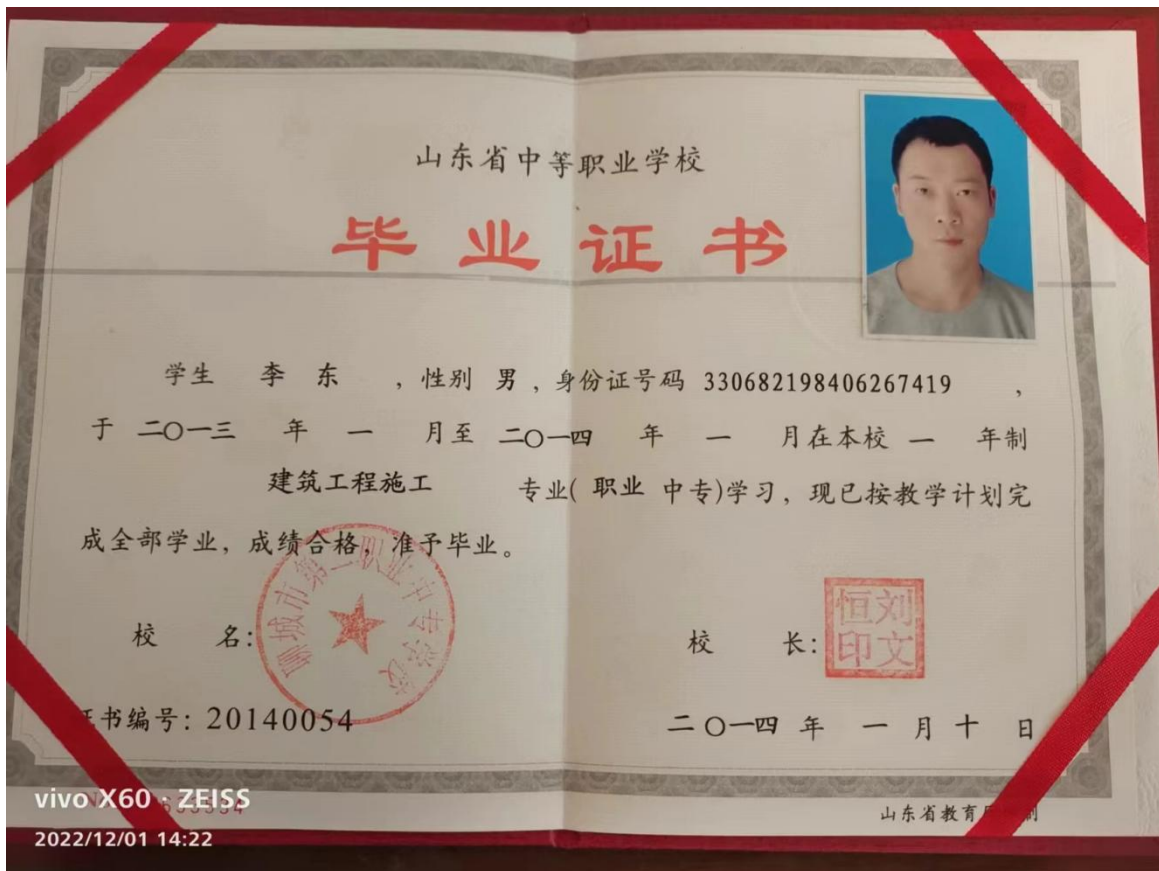 山东省中等职业学校
毕业证书
学生 李东 ，性别 男 ，身份证号码 330682198406267419 ，
于 二〇一三 年 一 月至 二〇一四 年 一 月在本校 一 年制
建筑工程施工 专业( 职业 中专)学习，现已按教学计划完
成全部学业，成绩合格，准予毕业。
聊城市第二职业中专学校
校 名：
校 长：
刘文恒印
证书编号：20140054
二〇一四 年 一 月 十 日
山东省教育厅 制
vivo X60 · ZEISS
2022/12/01 14:22